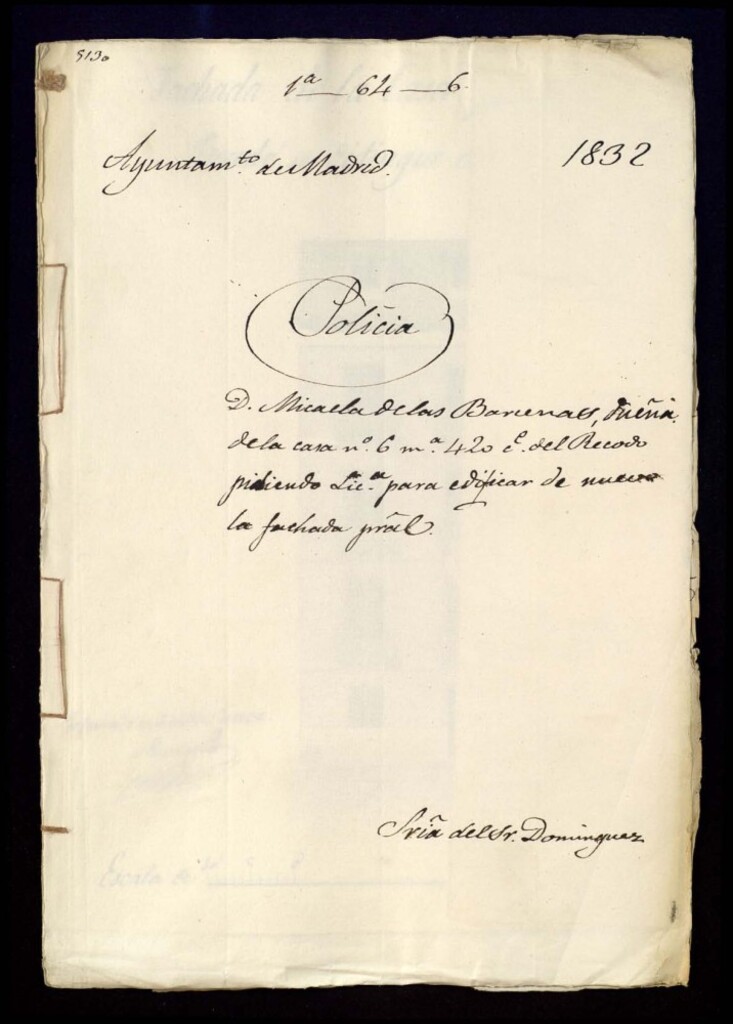 5130
1ª — 64 — 6.
Ayuntam.to de Madrid. 1832
Policia
D. Micaela de las Barcenas, dueña
de la casa nº. 6 m.ª 420 c.e del Recodo
pidiendo Lic.ª para edificar de nuevo
la fachada prãl.
Sriã del Sr. Dominguez
Escala de